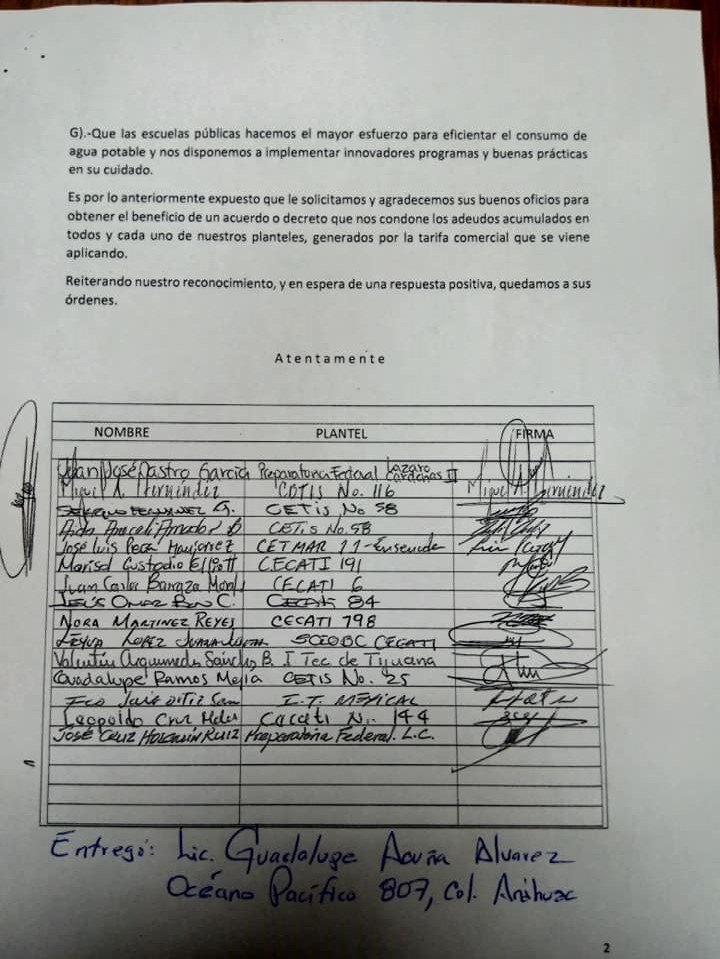 G).-Que las escuelas públicas hacemos el mayor esfuerzo para eficientar el consumo de
agua potable y nos disponemos a implementar innovadores programas y buenas prácticas
en su cuidado.
Es por lo anteriormente expuesto que le solicitamos y agradecemos sus buenos oficios para
obtener el beneficio de un acuerdo o decreto que nos condone los adeudos acumulados en
todos y cada uno de nuestros planteles, generados por la tarifa comercial que se viene
aplicando.
Reiterando nuestro reconocimiento, y en espera de una respuesta positiva, quedamos a sus
órdenes.
Atentamente
NOMBRE PLANTEL FIRMA
Juan José Castro García Preparatoria Federal Lázaro Cárdenas
Miguel A. Hernández CETIS No. 116 Miguel A. Hernández
CETIS No 58
Aida Araceli Amador B CETis No. 58
José Luis CETMAR 11-Ensenada
Marisol Custodio CECATI 191
Juan Carlos Barraza CECATI 6
Jesús Omar C. CECATI 84
NORA MARTINEZ REYES CECATI 798
LEYVA LOPEZ CECATI
Valentín Arquimedes Sánchez B. I Tec de Tijuana
Guadalupe Ramos Mejía CETIS No. 25
Fco Luis Ortiz I.T. MEXICAL
Leopoldo Cruz Cecati No. 144
JOSÉ CRUZ HOLGUÍN RUIZ Preparatoria Federal. L.C.
Entregó: Lic. Guadalupe Acuña Alvarez
Océano Pacífico 807, Col. Anáhuac
2